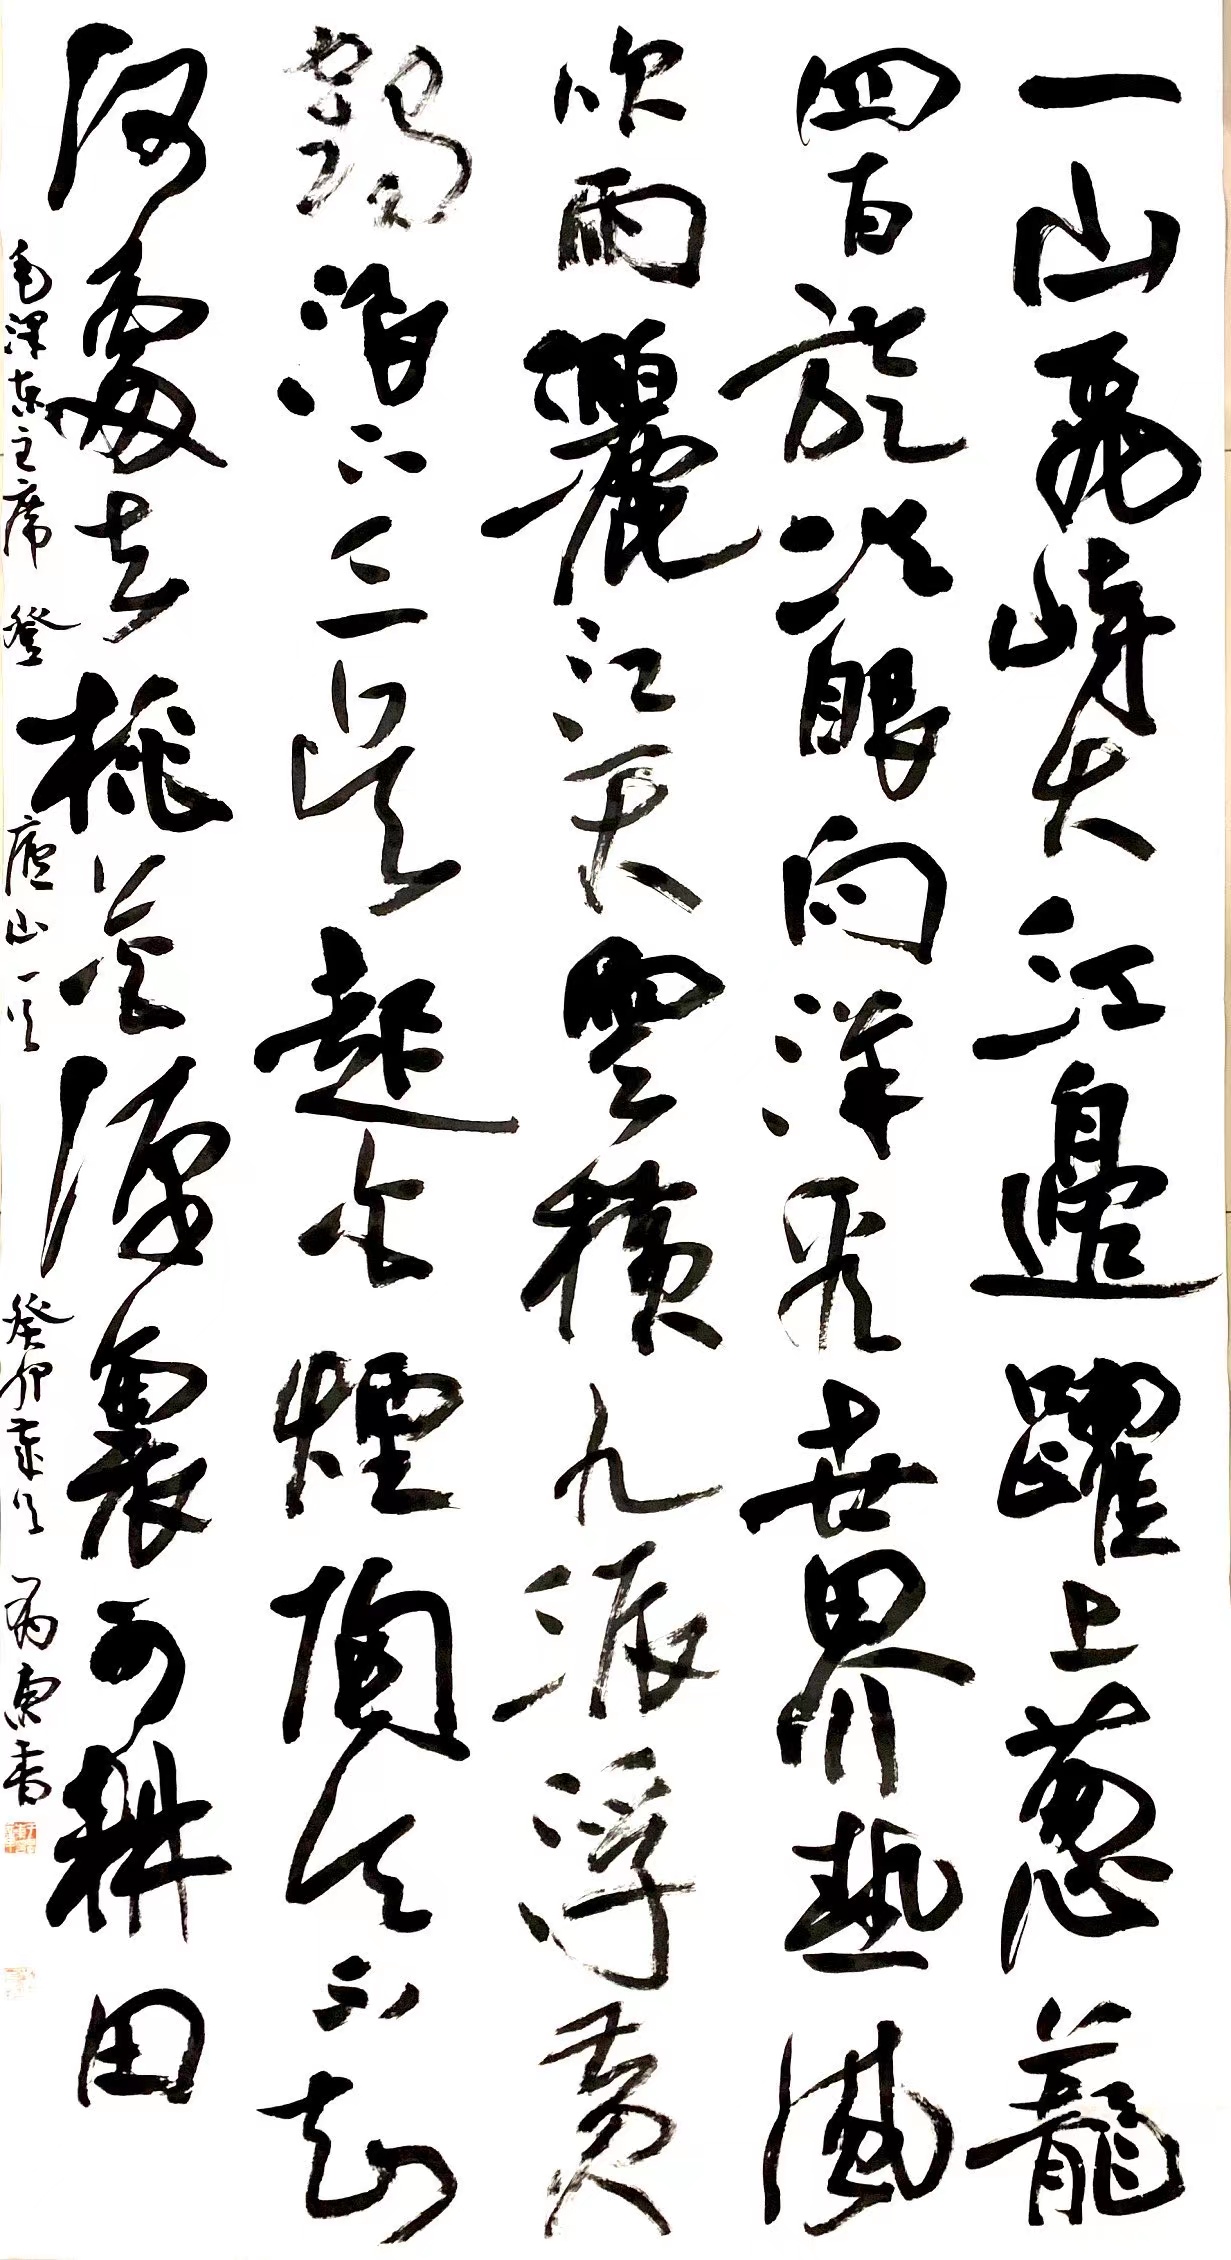 一山飛峙大江邊躍上葱蘢
四百旋冷眼向洋看世界熱風
吹雨灑江天雲横九派浮黄
鶴浪下三吴起白煙陶令不知
何處去桃花源裏可耕田
毛澤東主席登廬山一首癸卯歲